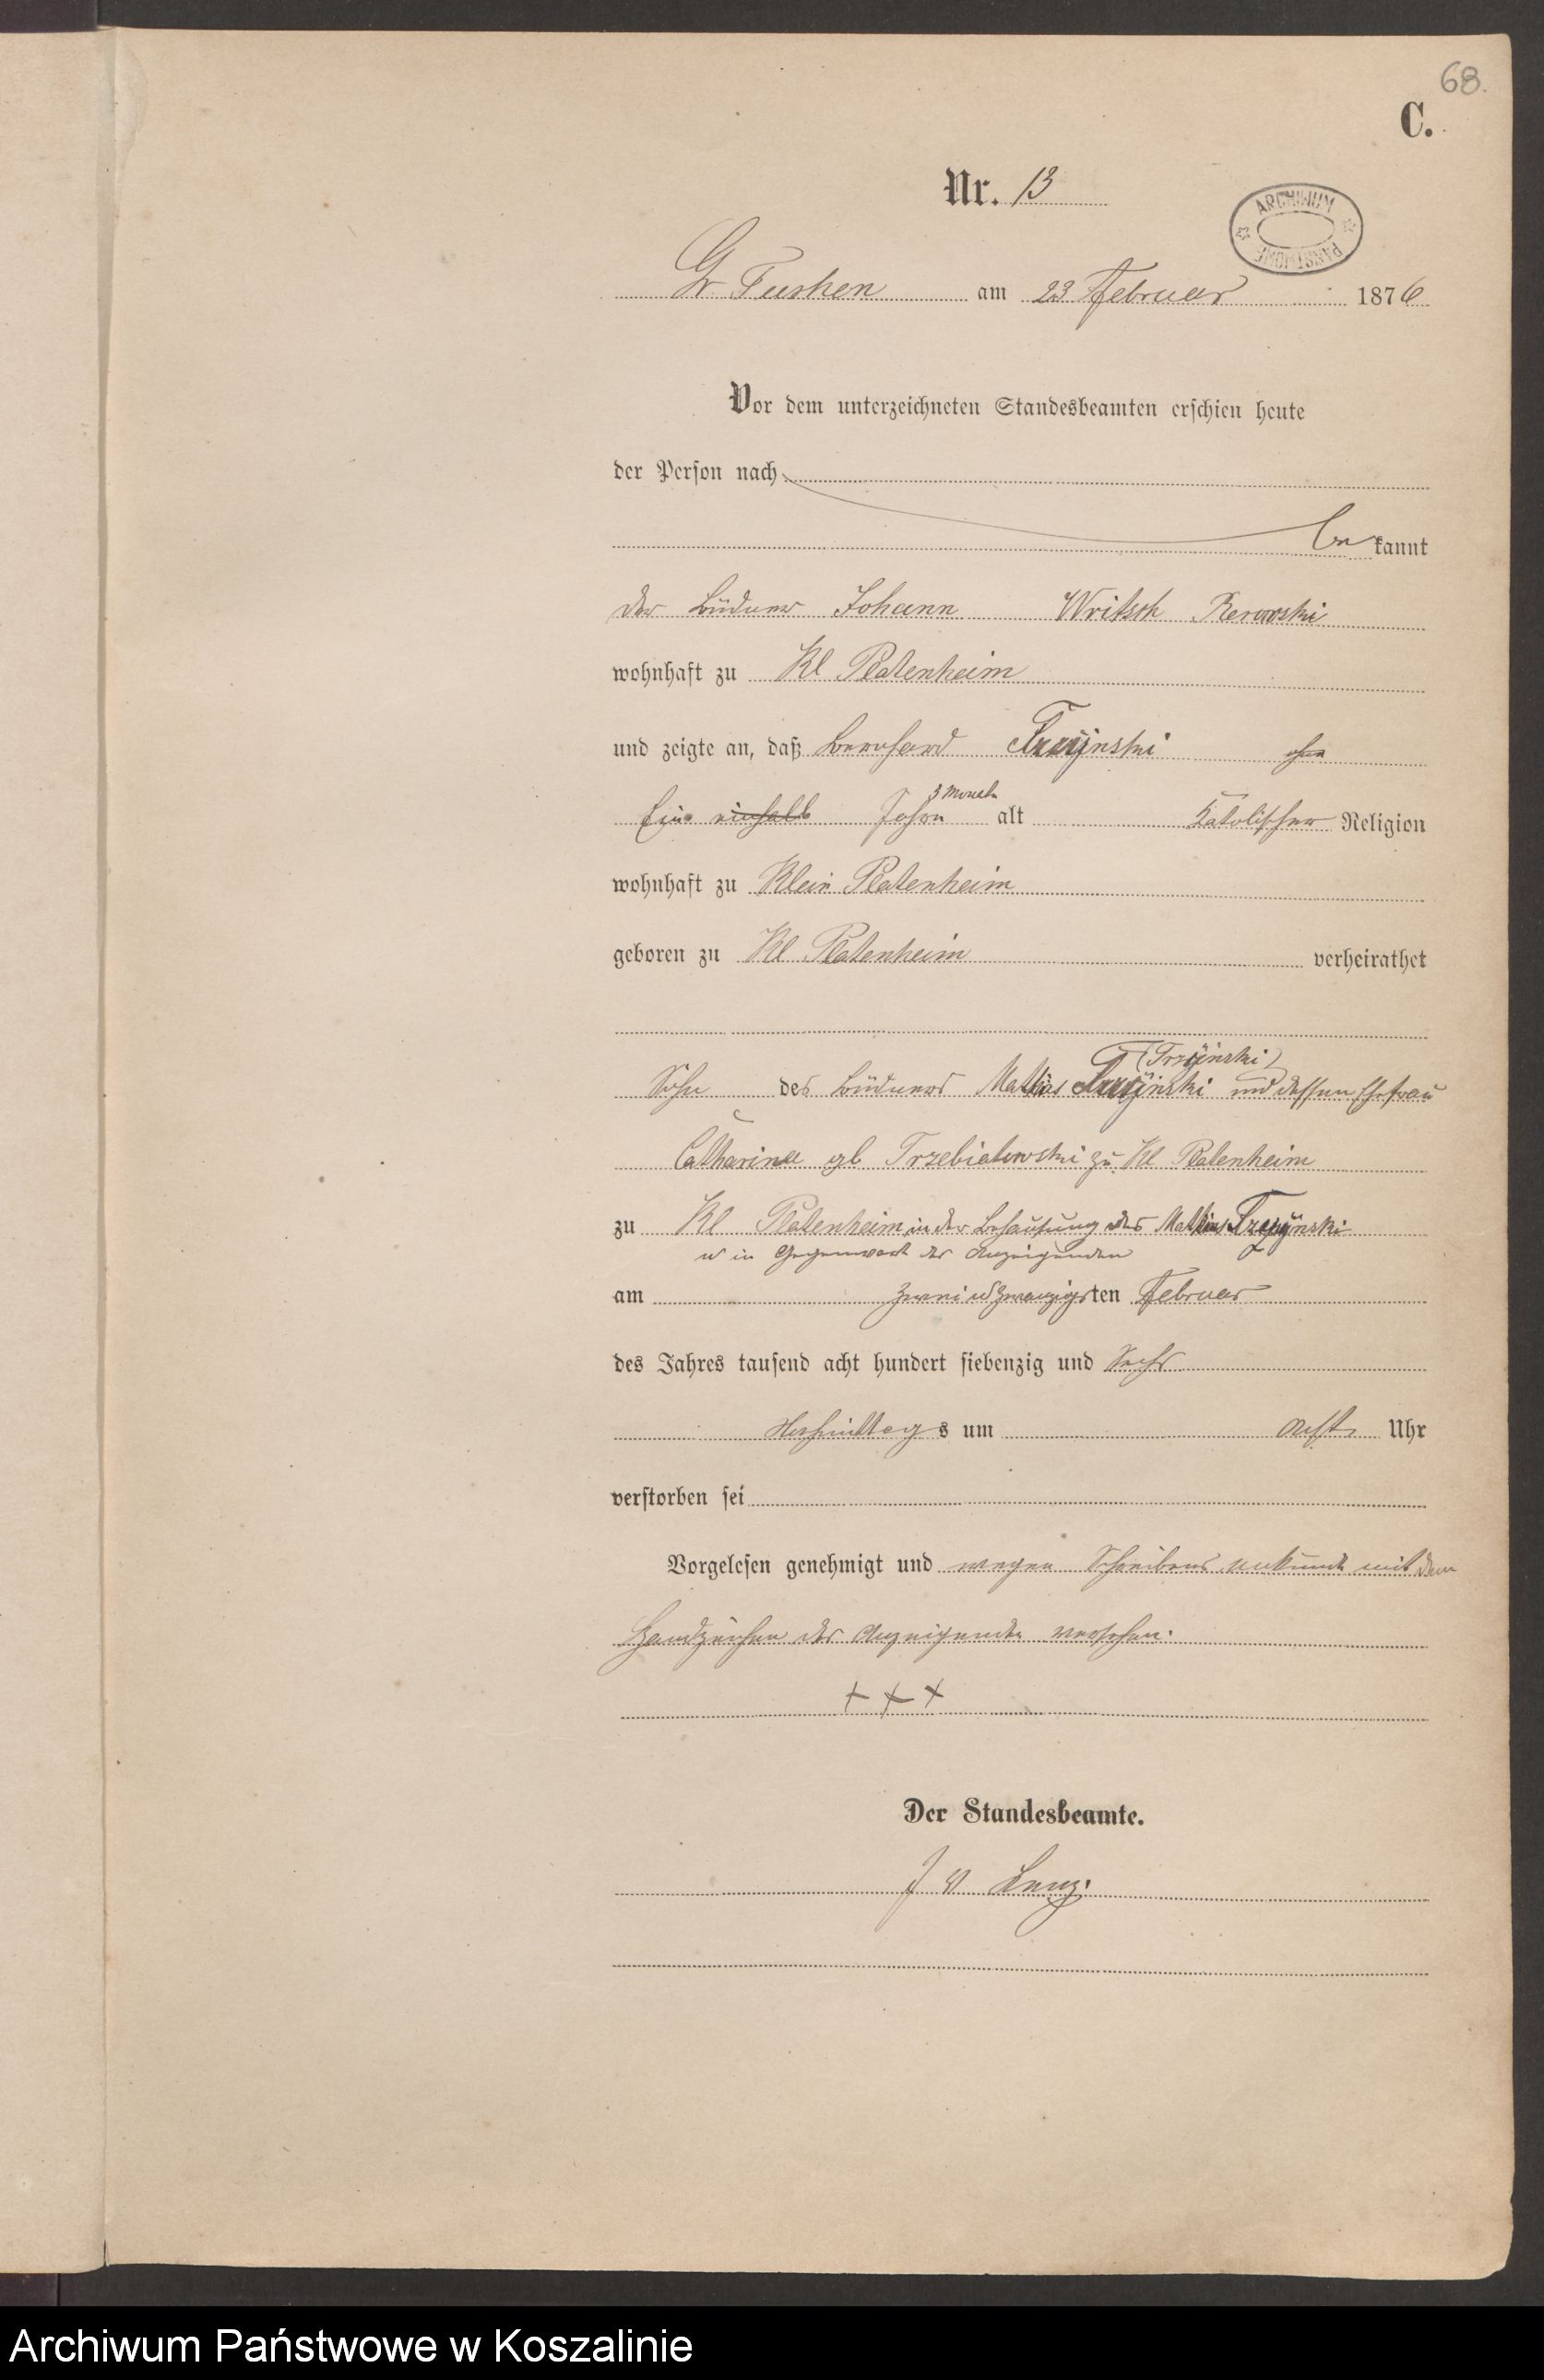 68.
C.
Nr. 13
ARCHIWUM PAŃSTWOWE
Gr Tuchen am 23 Februar 1876
Vor dem unterzeichneten Standesbeamten erschien heute
der Person nach
bekannt
der Büdner Johann Writsch Rerowski
wohnhaft zu Kl Platenheim
und zeigte an, daß Bernhard
Ein einhalb Jahre 3 Monate alt Katolischer Religion
wohnhaft zu Klein Platenheim
geboren zu Kl Platenheim verheirathet
(Trzÿinski)
Sohn des Büdners Mathias und dessen Ehefrau
Catharina gb Trzebiatowski zu Kl Platenheim
zu Kl Platenheim in der Behausung des Mathias
u in Gegenwart des Anzeigenden
am zwei u zwanzigsten Februar
des Jahres tausend acht hundert siebenzig und Sechs
Nachmittags um Acht Uhr
verstorben sei
Vorgelesen genehmigt und wegen Schreibens unkunde mit dem
Handzeichen des Anzeigenden versehen.
+ + +
Der Standesbeamte.
J V Lenz.
Archiwum Państwowe w Koszalinie